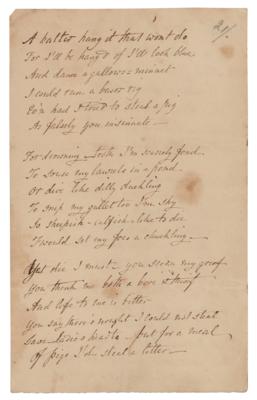 A halter hang it that wont do
For I'll be hang'd if I'll look blue
And dance a gallows = minuet
I could run a baser rig
E'en had I tried to steal a pig
As falsely you insinuate —
For drowning — troth I'm scarcely fond
To souse my laurels in a pond
Or dive like dilly duckling
To snip my gullet too I'm shy
So sheepish — calfish = like to die
T'would set my foes a chuckling —
Yet die I must — you scan my grief
You think me both a bore & thief
And life to me is bitter
You say there's nought I could not steal
but for a meal
Of pigs I'd steal a litter —